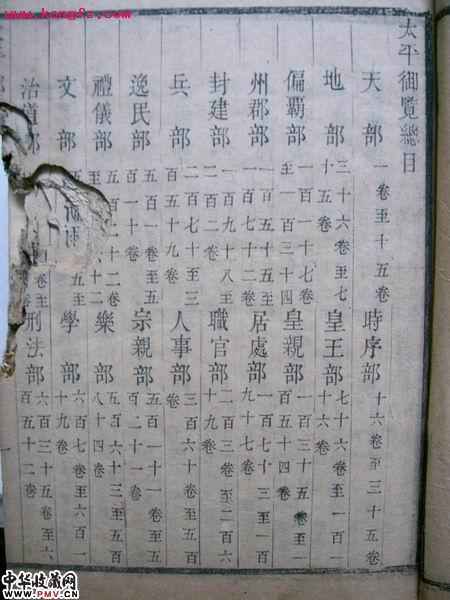 www.kongfz.com
太平御覽總目
天部 一卷至十五卷 時序部 十六卷至三十五卷
地部 三十六卷至七十五卷 皇王部 七十六卷至一百一十六卷
偏霸部 一百一十七卷至一百三十四 皇親部 一百三十五卷至一百五十四卷
州郡部 一百五十五至一百七十二卷 居處部 一百七十三至一百九十七卷
封建部 一百九十八至二百二卷 職官部 二百三卷至二百六十九卷
兵部 二百七十至三百五十九卷 人事部 三百六十卷
逸民部 五百一卷至五百一十卷 宗親部 五百一十一卷至五百二十一卷
禮儀部 五百二十二卷 六十二 樂部 五百六十三至五百八十四卷
文部 五 學部 六百七卷至六百一十九卷
治道部 卷至 刑法部 六百三十五卷至六百五十二卷
一
中华收藏网
www.PMV.cn